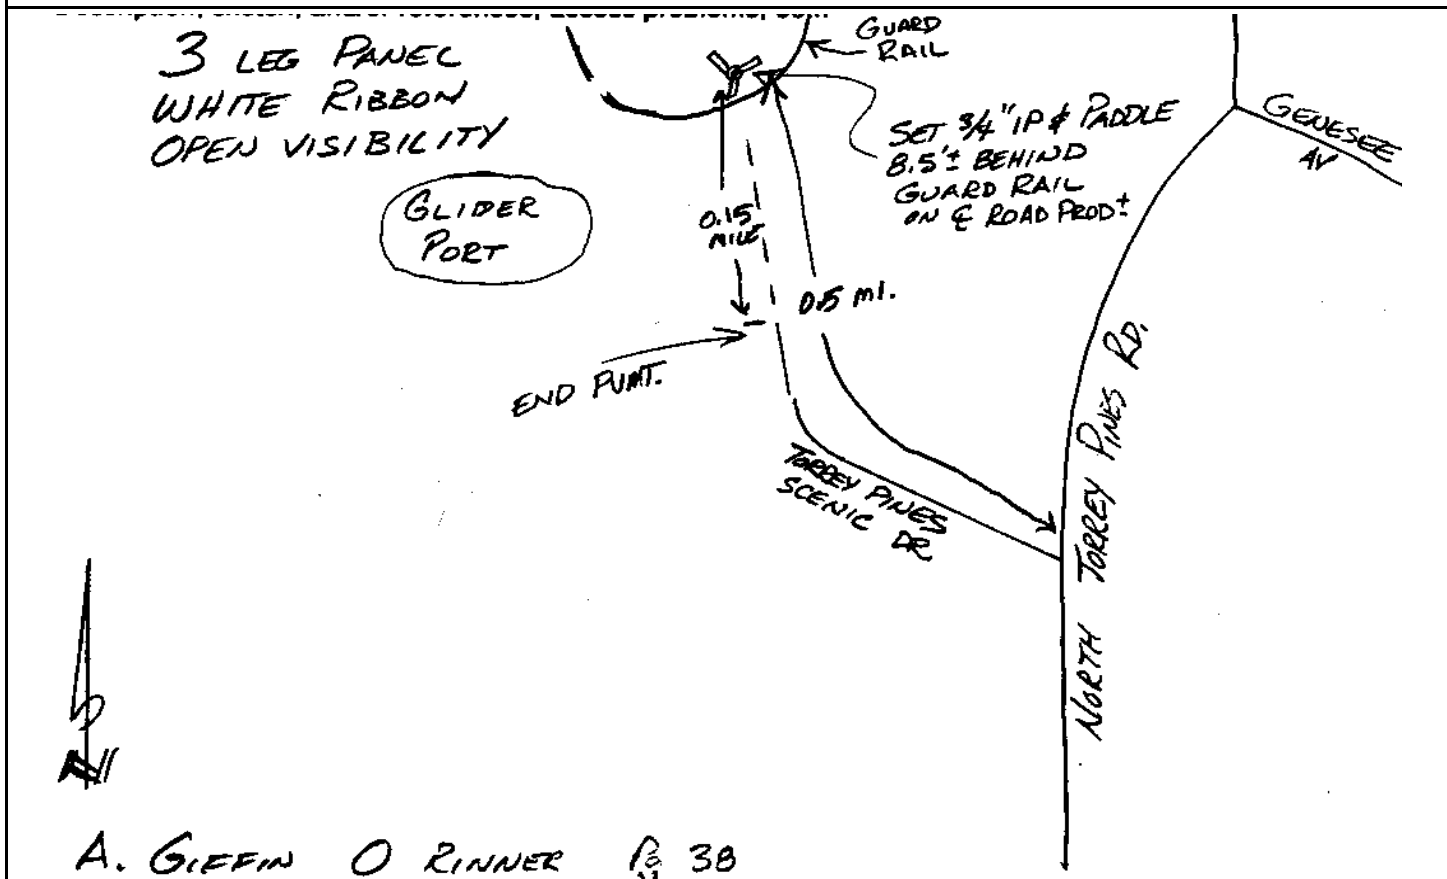 3 LEG PANEL
WHITE RIBBON
OPEN VISIBILITY
GUARD
RAIL
GENESEE
AV
SET 3/4" IP & PADDLE
8.5'± BEHIND
GUARD RAIL
ON ℄ ROAD PROD±
GLIDER
PORT
0.15
MILE
0.5 MI.
END PVMT.
TORREY PINES
SCENIC DR
NORTH TORREY PINES RD.
N
A. GIFFIN O RINNER Pg 38